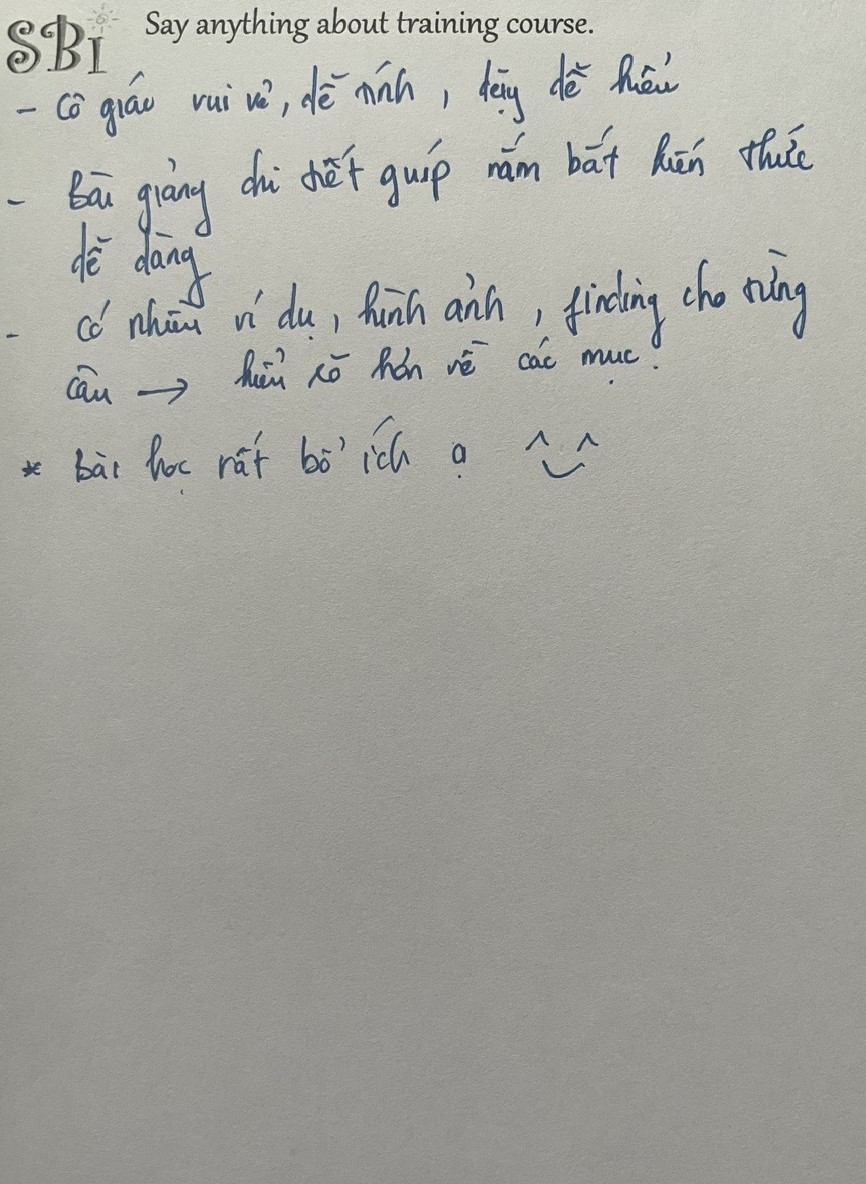 SBI Say anything about training course.
- Cô giáo vui vẻ, dễ tính, dạy dễ hiểu
- Bài giảng chi tiết giúp nắm bắt kiến thức
dễ dàng
- Có nhiều ví dụ, hình ảnh, finding cho từng
câu → hiểu rõ hơn về các mục.
* Bài học rất bổ ích ạ ^‿^